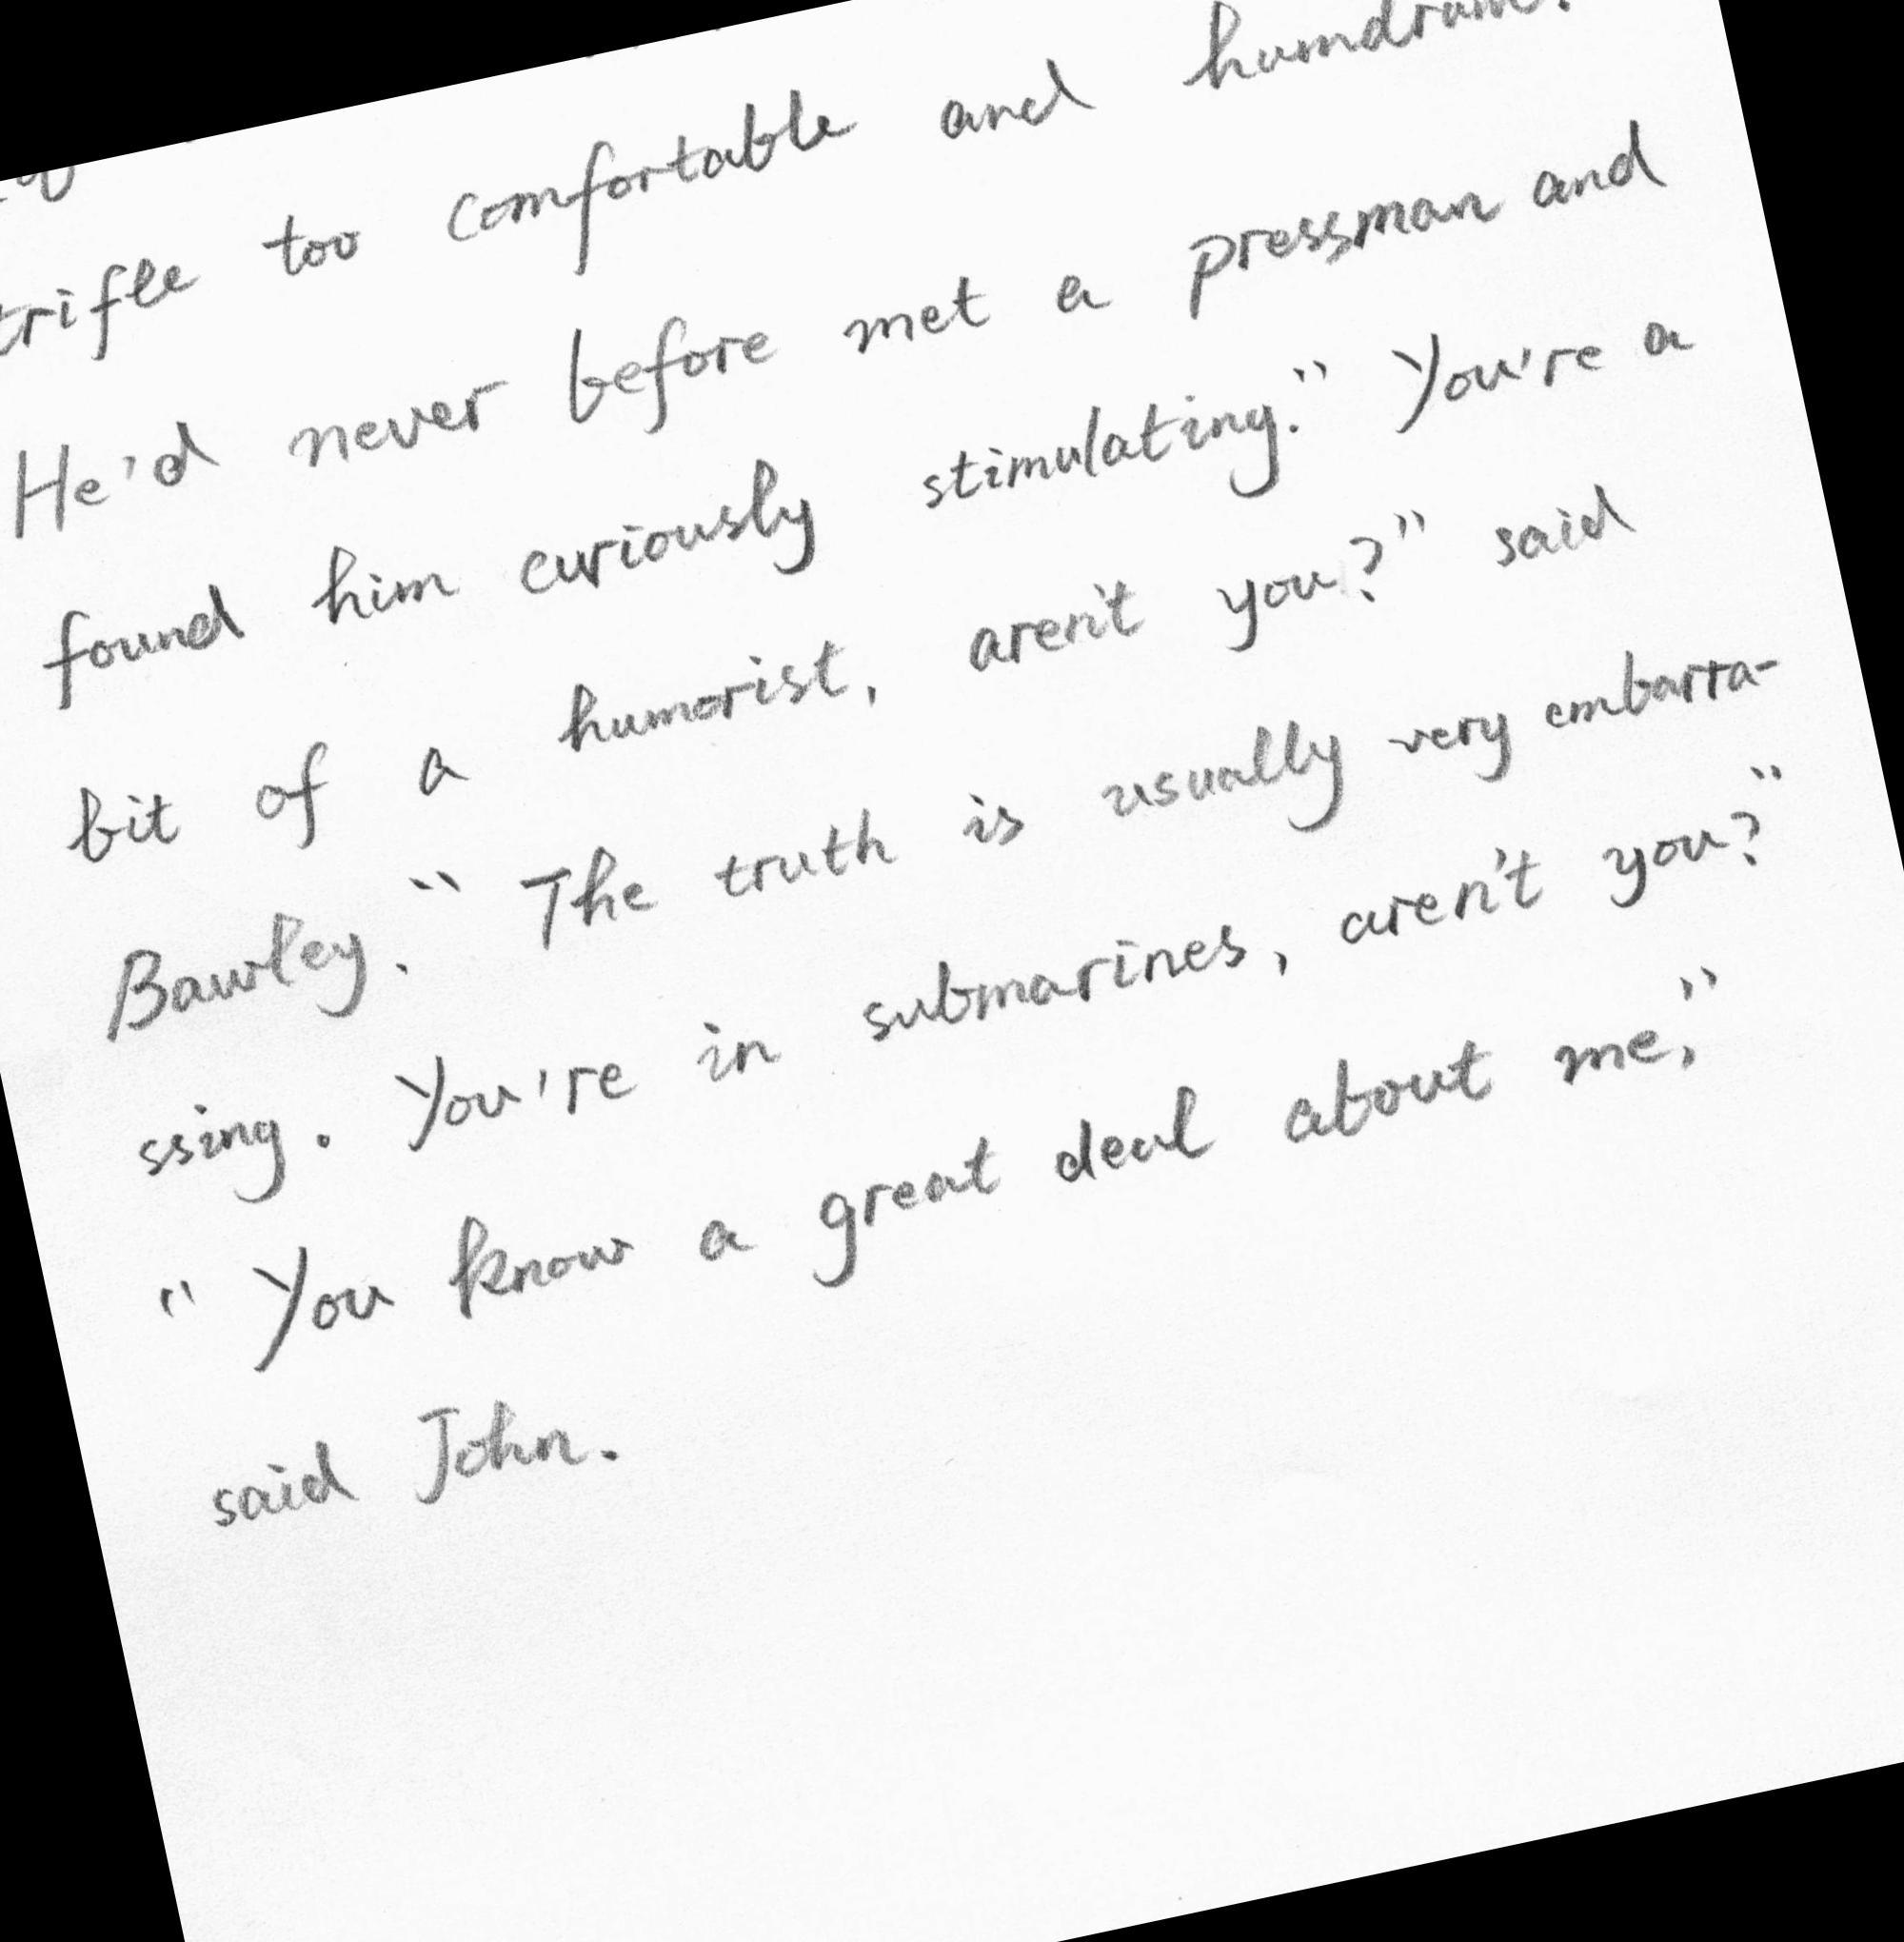 trifle too comfortable and humdrum.
He'd never before met a pressman and
found him curiously stimulating." You're a
bit of a humorist, aren't you?" said
Bawley." The truth is usually very embarra-
ssing. You're in submarines, aren't you?"
"You know a great deal about me,"
said John.